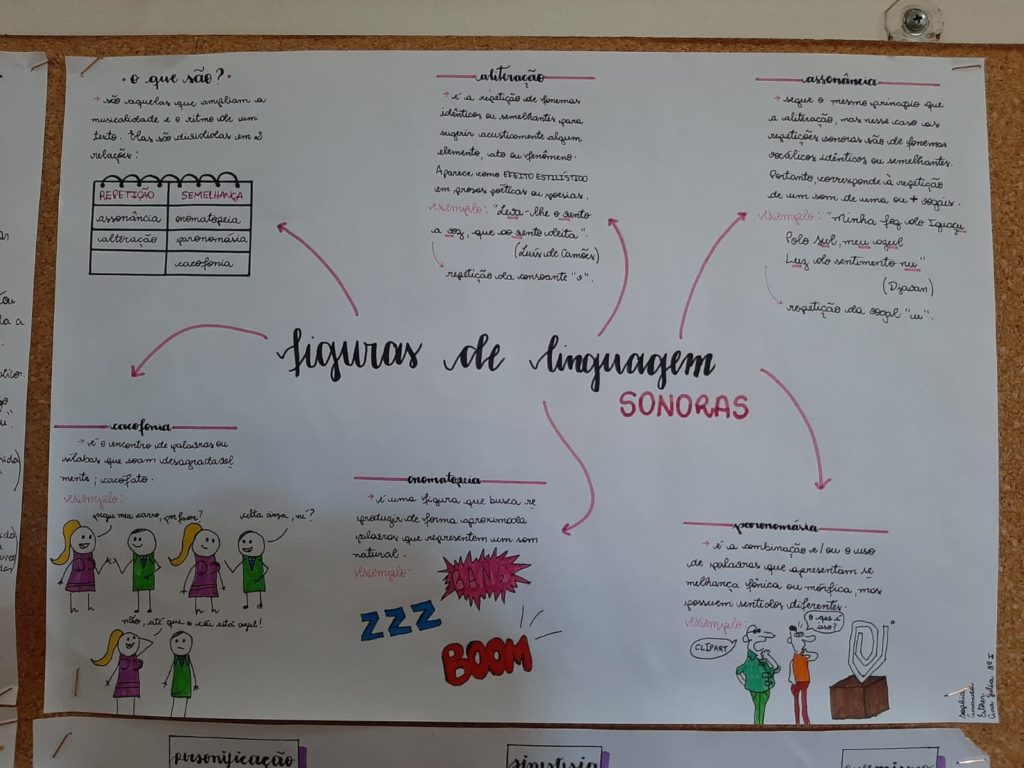 • o que são? •
→ são aquelas que ampliam a
musicalidade e o ritmo de um
texto. Elas são divididas em 2
relações:
REPETIÇÃO SEMELHANÇA
assonância onomatopeia
aliteração paronomásia
cacofonia
aliteração
→ é a repetição de fonemas
idênticos ou semelhantes para
sugerir acusticamente algum
elemento, ato ou fenômeno.
Aparece como EFEITO ESTILÍSTICO
em prosas poéticas ou poesias.
exemplo: "Leva-lhe o vento
a voz, que ao vento deita".
(Luís de Camões)
repetição da consoante "v".
assonância
→ segue o mesmo princípio que
a aliteração, mas nesse caso as
repetições sonoras são de fonemas
vocálicos idênticos ou semelhantes.
Portanto, corresponde à repetição
de um som de uma ou + vogais.
exemplo: "Minha foz do Iguaçu
Polo sul, meu azul
Luz do sentimento nu"
(Djavan)
repetição da vogal "u".
figuras de linguagem
SONORAS
cacofonia
→ é o encontro de palavras ou
sílabas que soam desagradavel
mente; cacófato.
exemplo:
pegue meu carro, por favor?
volta cinza, né?
não, até que o céu está azul!
onomatopeia
→ é uma figura que busca re
produzir de forma aproximada
palavras que representem um som
natural.
exemplo:
BANG
ZZZ
BOOM
paronomásia
→ é a combinação e/ou o uso
de palavras que apresentam se
melhança fônica ou mórfica, mas
possuem sentidos diferentes.
exemplo:
CLIPART
O que é
isso?
Sophia
Amanda
Ester
Ana Julia 3º I
personificação
sinestesia